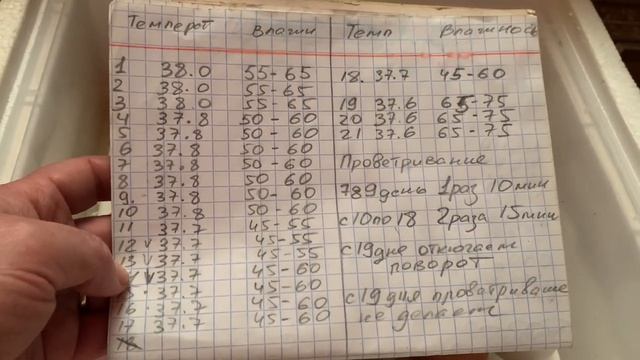 Темперот Влагни
1 38.0 55-65
2 38.0 55-65
3 38.0 55-65
4 37.8 50-60
5 37.8 50-60
6 37.8 50-60
7 37.8 50-60
8 37.8 50 60
9. 37.8 50-60
10 37.8 50-60
11 37.7 45-55
12 v 37.7 45-55
13 v 37.7 45-55
v 37.7 45-60
15 · 37.7 45-60
16 · 37.7 45-60
17 37.7 45-60
18
Темп Влагиность
18. 37.7 45-60
19 37.6 65-75
20 37.6 65-75
21 37.6 65-75
Проветривание
789 день 1 раз 10 мин
с 10 по 18 2 раза 15 мин
с 19 дня отключаем
поворот
с 19 дня
не делаем